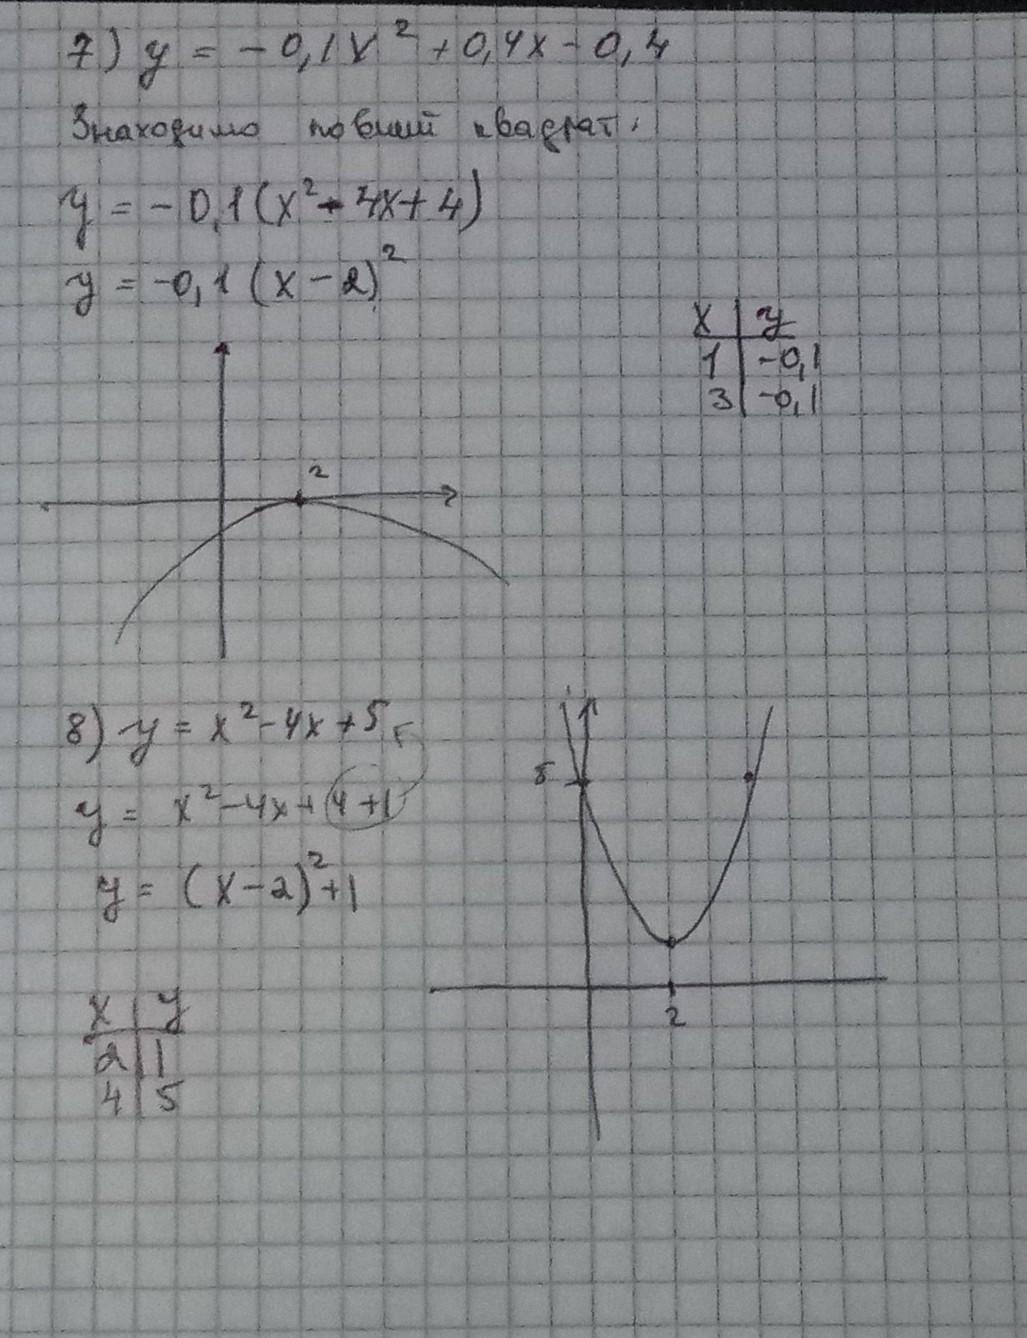 7) y = -0,1x² + 0,4x - 0,4
Знаходимо повний квадрат:
y = -0,1(x² - 4x + 4)
y = -0,1(x - 2)²
x | y
1 | -0,1
3 | -0,1
2
8) y = x² - 4x + 5
y = x² - 4x + 4 + 1
y = (x - 2)² + 1
5
2
x | y
2 | 1
4 | 5